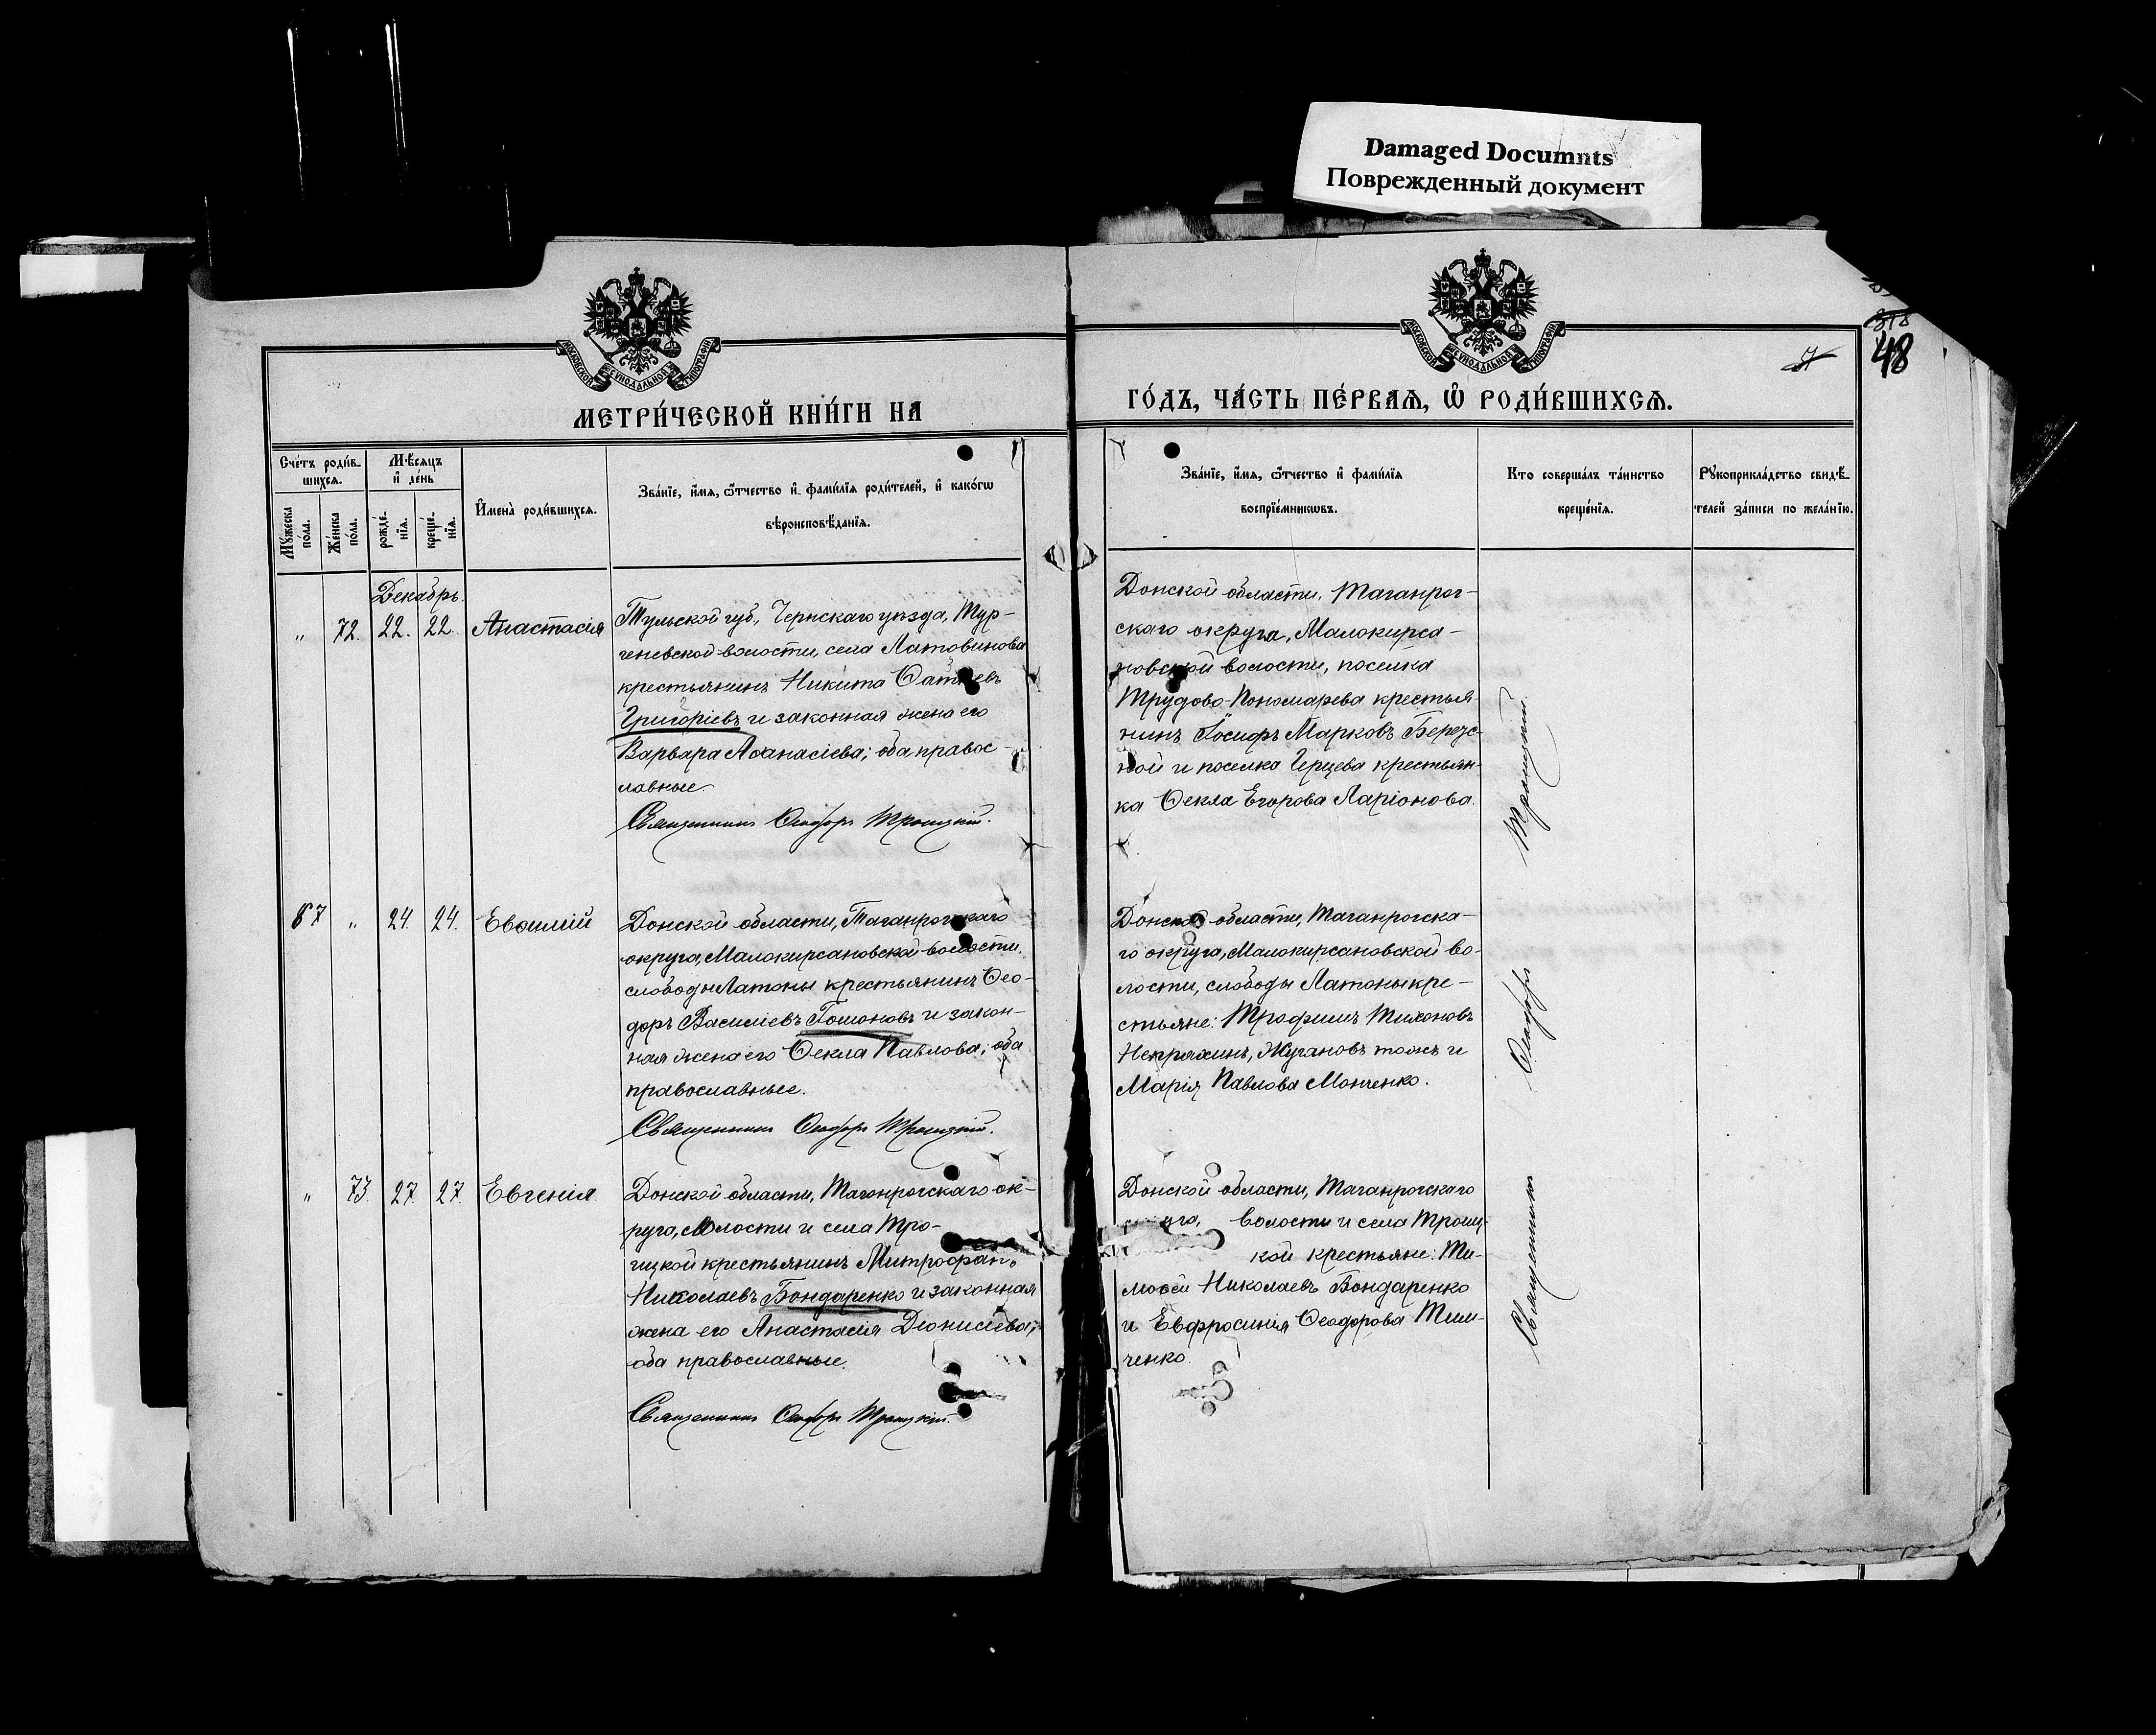 Damaged Documnts
Поврежденный документ
МОСКОВСКОЙ СѴНОДАЛЬНОЙ ТИПОГРАФІИ
МОСКОВСКОЙ СѴНОДАЛЬНОЙ ТИПОГРАФІИ
318
48
МЕТРИ́ЧЕСКОЙ КНИ́ГИ НА
ГО́ДЪ, ЧА́СТЬ ПЕ́РВАѦ, Ѡ҆ РОДИ́ВШИХСѦ.
Сче́тъ роди́в-
шихсѧ.
Мꙋ́жеска по́ла.
Же́нска по́ла.
Мѣ́сѧцъ
и҆ де́нь
рожде́-
нїѧ.
креще́-
нїѧ.
И҆мена̀ роди́вшихсѧ.
Зва́нїе, и҆́мѧ, ѻ҆́тчество и҆ фами́лїѧ роди́телей, и҆ како́гѡ
вѣроисповѣ́данїѧ.
Зва́нїе, и҆́мѧ, ѻ҆́тчество и҆ фами́лїѧ
воспрїе́мникѡвъ.
Кто соверша́лъ та́инство
креще́нїѧ.
Рꙋкоприкла́дство свидѣ́-
телей за́писи по жела́нїю.
Декабрь.
„ 72. 22. 22. Анастасія
Тульской губ., Чернскаго уѣзда, Тур-
геневской волости, села Лотовинова
крестьянинъ Никита
Григоріевъ и законная жена его
Варвара Аѳанасіева; оба правос-
лавные.
Священникъ Ѳеодоръ Троицкій.
Донской области, Таганрог-
скаго округа, Малокирса-
новской волости, поселка
Трудово-Пономарева крестья-
нинъ Іосифъ Марковъ Берез-
ной и поселка Герцева крестьян-
ка Ѳекла Егорова Ларіонова.
87 „ 24. 24. Евѳимій
Донской области, Таганрогскаго
округа, Малокирсановской волости,
слободы Латоны крестьянинъ Ѳео-
доръ Василіевъ Гомоновъ и закон-
ная жена его Ѳекла Павлова; оба
православные.
Священникъ Ѳеодоръ Троицкій.
Донской области, Таганрогска-
го округа, Малокирсановской во-
лости, слободы Латоны кре-
стьяне: Трофимъ Тихоновъ
Непряхинъ, Жугановъ тожъ и
Марія Павлова Монченко.
„ 73. 27. 27. Евгенія
Донской области, Таганрогскаго ок-
руга, волости и села Тро-
ицкой крестьянинъ Митрофанъ
Николаевъ Бондаренко и законная
жена его Анастасія Діонисіева;
оба православные.
Священникъ Ѳеодоръ Троицкій.
Донской области, Таганрогскаго
волости и села Троиц-
кой крестьяне: Ти-
моѳей Николаевъ Бондаренко
и Евфросинія Ѳеодорова Тим-
ченко.
Священникъ Ѳеодоръ Троицкій.